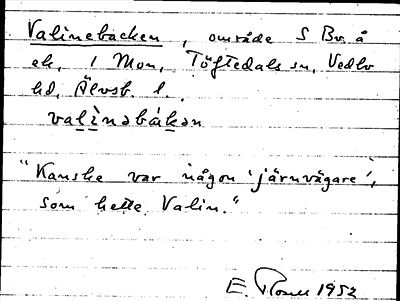 Valinebacken, område S Bv. å
ek. 1 Mon, Töftedals sn, Vedbo
hd, Älvsb. l.
valìnəbákən
"Kanske var någon 'järnvägare',
som hette Valin."
E. 1952